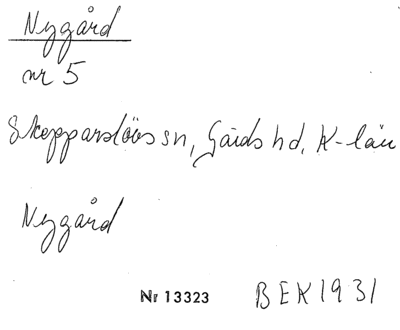 Nygård
nr 5
Skepparslövs sn, Gärds hd, K-län
Nygård
Nr 13323 BEK1931